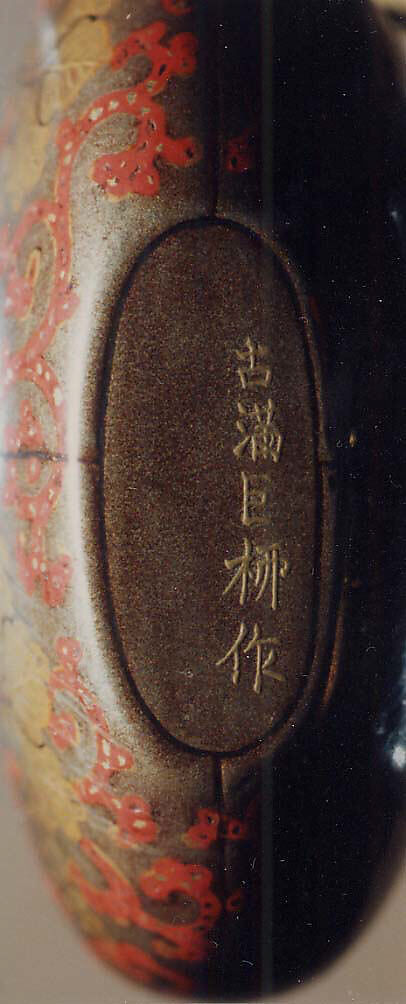 古満巨柳作